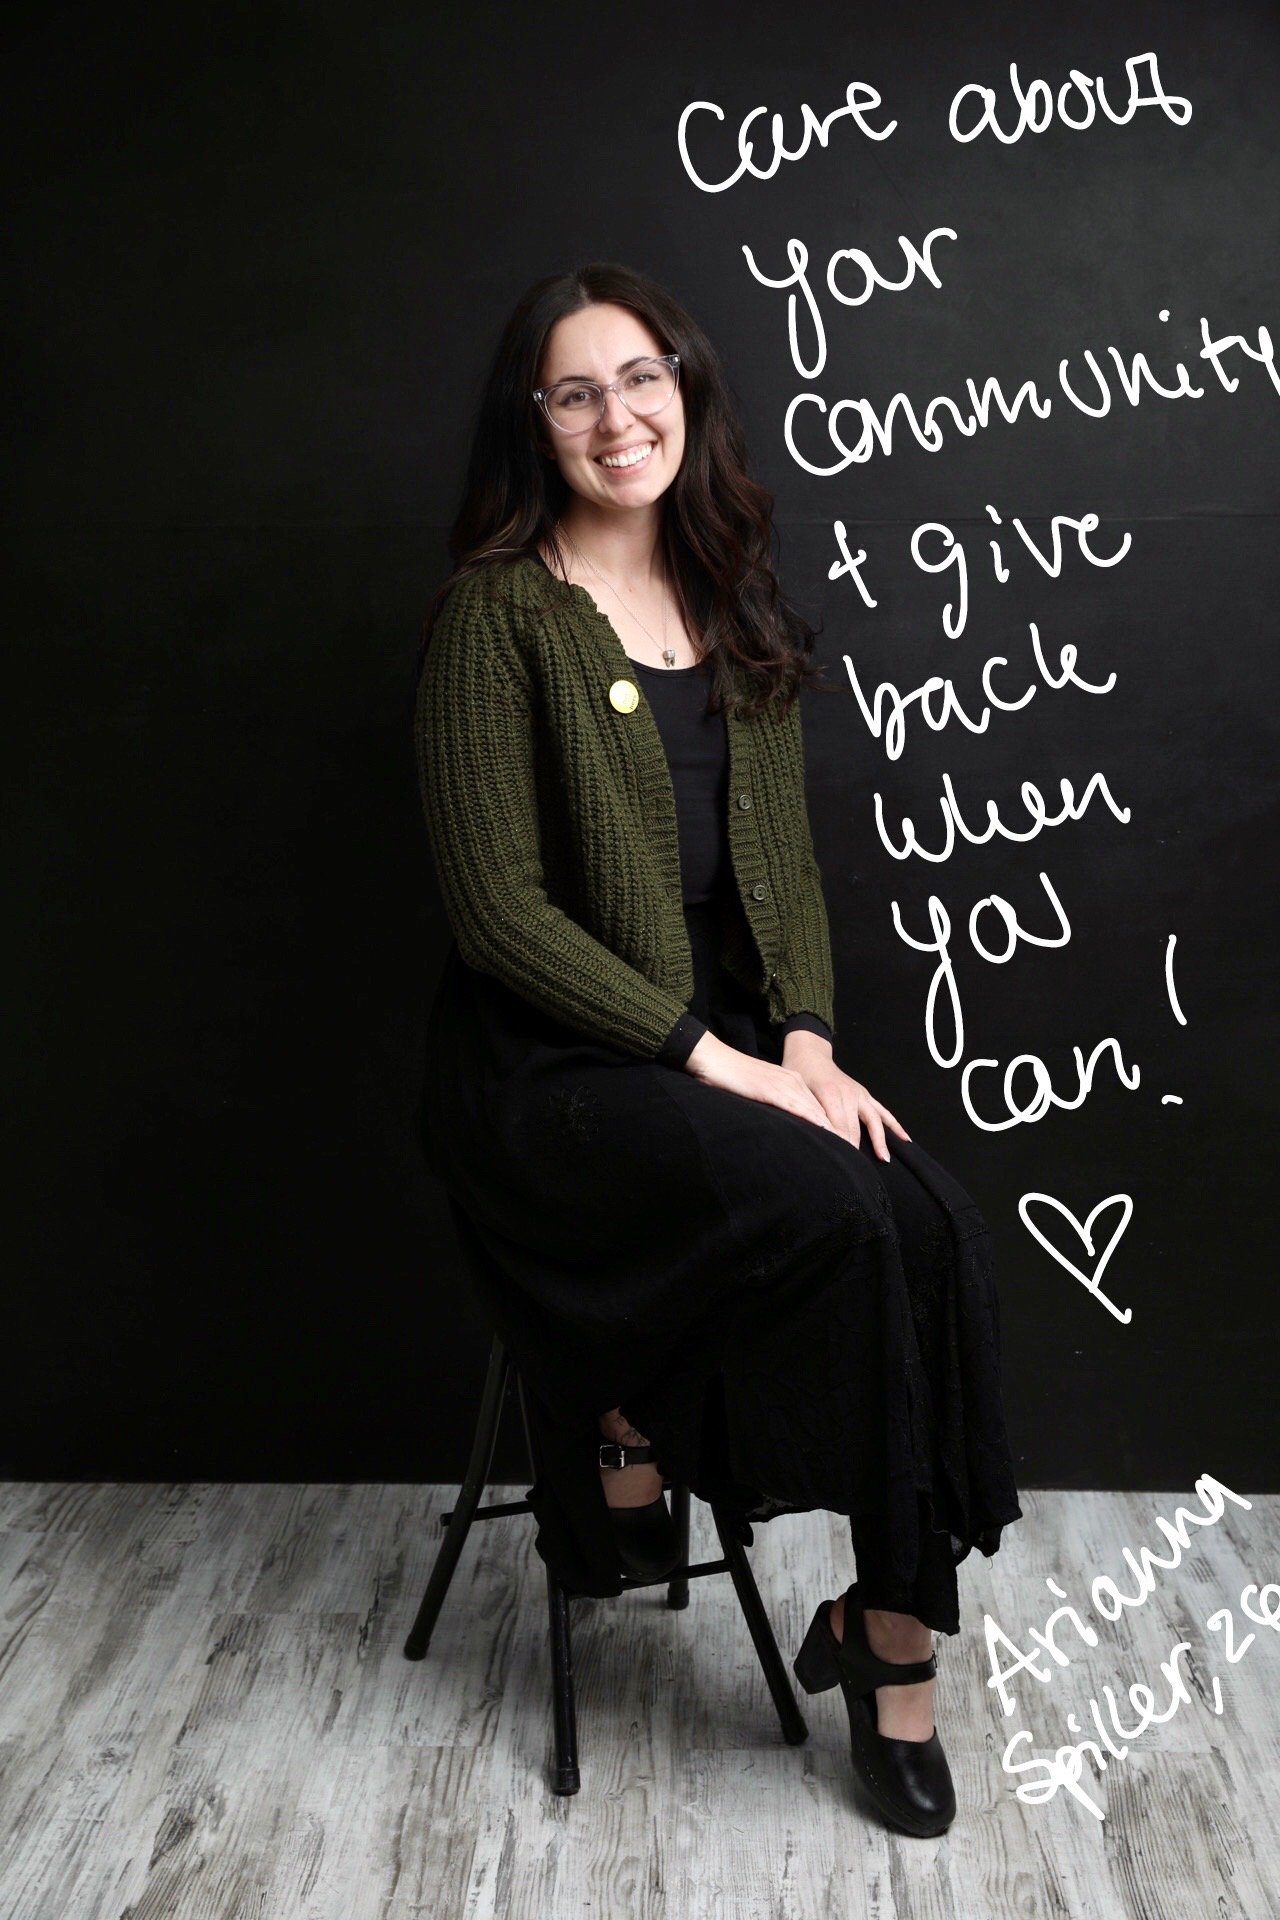 Care about
your
community
+ give
back
when
you
can!
Arianna
Spiller, 26